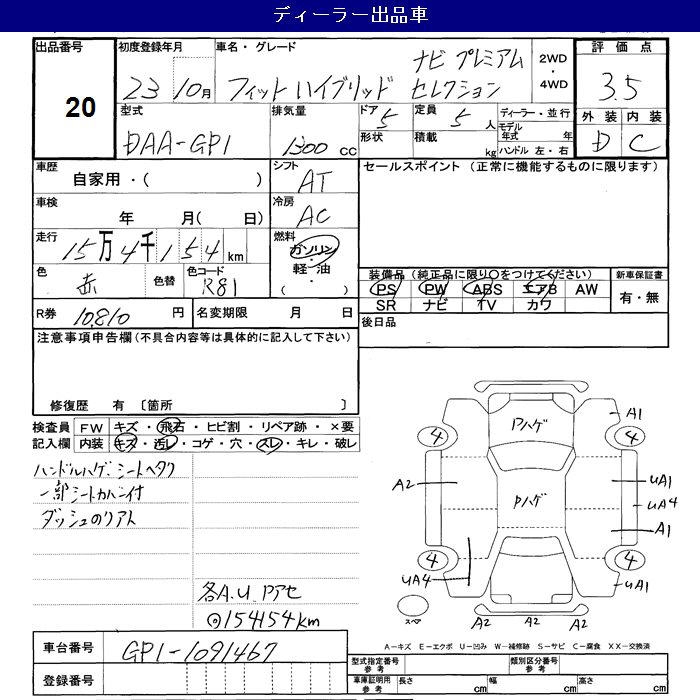 ディーラー出品車
出品番号 初度登録年月 車名・グレード 2WD・4WD 評価点
20 23 10月 フィットハイブリッド ナビプレミアムセレクション 3.5
外装 内装
D C
型式 排気量 ドア 定員 ディーラー・並行
DAA-GP1 1300 CC 5 5 人 モデル年式 年式
形状 積載 kg ハンドル 左・右
車歴 シフト セールスポイント (正常に機能するものに限ります)
自家用・( ) AT
車検 冷房
年 月( 日) AC
走行 燃料
15万4千154km ガソリン・軽・油・( )
色 色替 色コード
赤 R81
装備品(純正品に限り○をつけてください) 新車保証書
PS PW ABS エアB AW 有・無
SR ナビ TV カワ
R券 10,810 円 名変期限 月 日 後日品
注意事項申告欄(不具合内容等は具体的に記入して下さい)
修復歴 有 〔箇所 〕
検査員記入欄 FW キズ・飛石・ヒビ割・リペア跡・×要
内装 キズ・汚レ・コゲ・穴・スレ・キレ・破レ
ハンドルハゲ、シートヘタリ
一部シートカバー付
ダッシュのリアト
各A.U Pアセ
◎154154km
Pハゲ
A1
4 4
A2 Pハゲ UA1
UA4
A1
4 4
UA4 UA1
スペア A2 A2 A2
A-キズ E-エクボ U-凹み W-補修跡 S-サビ C-腐食 XX-交換済
車台番号 GP1-1091467
登録番号
型式指定番号 参考 類別区分番号 参考
車庫証明用 参考 長さ cm 幅 cm 高さ cm